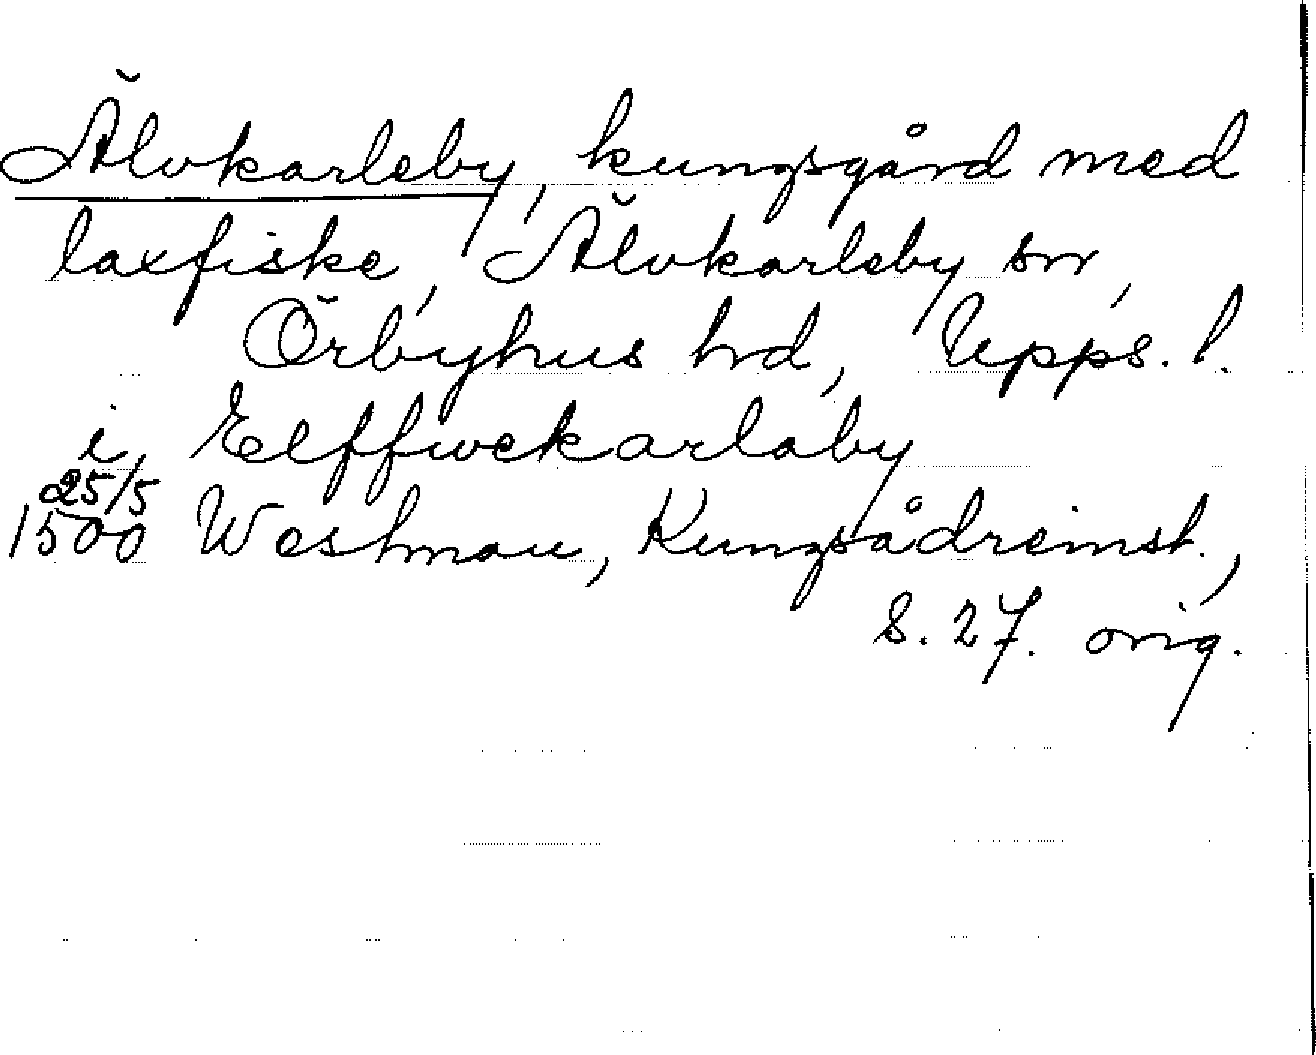 Älvkarleby, kungsgård med
laxfiske, Älvkarleby sn,
Örbyhus hd, Upps. l.
i Elffwekarlaby
25/5
1500 Westman, Kungsådreinst.,
S. 27. orig.